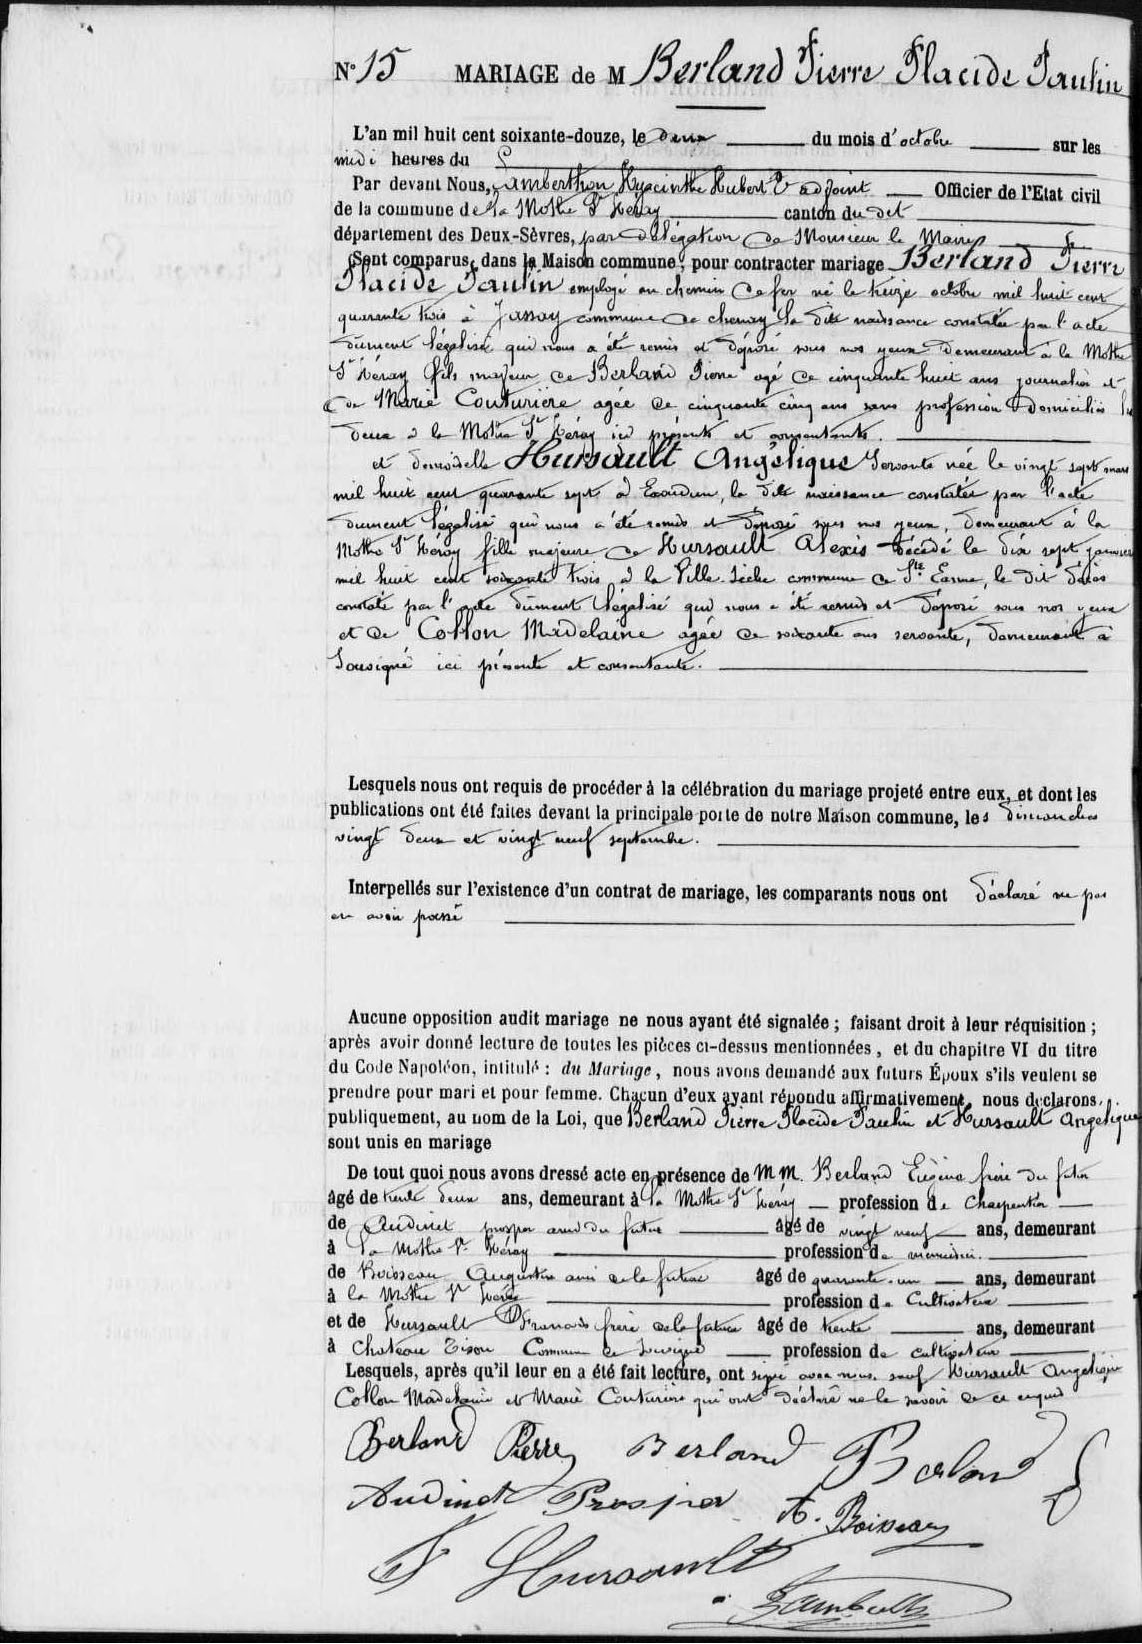 N° 15 MARIAGE de M Berland Pierre Placide Paulin
L'an mil huit cent soixante-douze, le deux du mois d'octobre sur les
midi heures du
Par devant Nous, Lamberthon Hyacinthe Hubert adjoint Officier de l'Etat civil
de la commune de La Mothe St Héray canton du dit
département des Deux-Sèvres, par délégation de Monsieur le Maire
Sont comparus, dans la Maison commune, pour contracter mariage Berland Pierre
Placide Paulin employé au chemin de fer né le treize octobre mil huit cent
quarante trois à Jassay commune de chenay la dite naissance constatée par l'acte
dument légalisé qui nous a été remis et déposé sous nos yeux demeurant à la Mothe
St Héray fils majeur de Berland Pierre agé de cinquante huit ans journalier et
de Marie Couturière agée de cinquante cinq ans sans profession domiciliés
deux à la Mothe St Héray ici présents et consentants.
et demoiselle Hursault Angélique Servante née le vingt sept mars
mil huit cent quarante sept à Exoudun, la dite naissance constatée par l'acte
dument légalisé qui nous a été remis et déposé sous nos yeux, demeurant à la
Mothe St Héray fille majeure de Hursault Alexis décédé le dix sept janvier
mil huit cent soixante trois à la Ville Sèche commune de Ste Eanne, le dit décès
constaté par l'acte dûment légalisé qui nous a été remis et déposé sous nos yeux
et de Collon Madelaine agée de soixante ans servante, demeurant à
Souvigné ici présente et consentante.
Lesquels nous ont requis de procéder à la célébration du mariage projeté entre eux, et dont les
publications ont été faites devant la principale porte de notre Maison commune, les dimanches
vingt deux et vingt neuf septembre.
Interpellés sur l'existence d'un contrat de mariage, les comparants nous ont déclaré ne pas
en avoir passé
Aucune opposition audit mariage ne nous ayant été signalée ; faisant droit à leur réquisition ;
après avoir donné lecture de toutes les pièces ci-dessus mentionnées, et du chapitre VI du titre
du Code Napoléon, intitulé : du Mariage, nous avons demandé aux futurs Époux s'ils veulent se
prendre pour mari et pour femme. Chacun d'eux ayant répondu affirmativement, nous déclarons,
publiquement, au nom de la Loi, que Berland Pierre Placide Paulin et Hursault Angélique
sont unis en mariage
De tout quoi nous avons dressé acte en présence de MM. Berland Eugène frère du futur
âgé de trente deux ans, demeurant à la Mothe St Héray profession de Charpentier
de Audinet prosper ami du futur âgé de vingt neuf ans, demeurant
à la Mothe St Héray profession de menuisier.
de Boisseau Augustin ami de la future âgé de quarante-un ans, demeurant
à la Mothe St Héray profession de Cultivateur
et de Hursault François frère de la future âgé de trente ans, demeurant
à Chateau Tison Commune de Souvigné profession de cultivateur
Lesquels, après qu'il leur en a été fait lecture, ont signé avec nous sauf Hursault Angélique
Collon Madelaine et Marie Couturière qui ont déclaré ne le savoir de ce enquis
Berland Pierre Berland Berland
Audinet Prosper A. Boisseau
F Hursault